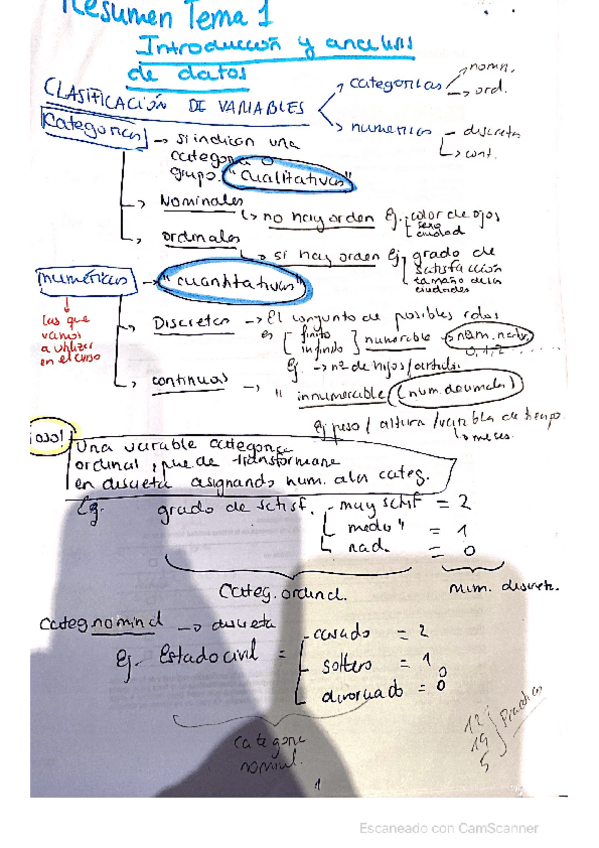 Resumen Tema 1
Introducción y analisis
de datos
CLASIFICACIÓN DE VARIABLES
categoricas
nomn.
ord.
numericas
discreta
cont.
Categoricas → si indican una
categoria o
grupo. "cualitativas"
→ Nominales
↳ no hay orden Ej. color de ojos
sexo
ciudad
→ ordinales
↳ si hay orden Ej grado de
satisfacción
tamaño de las
ciudades
numéricas → "cuantitativas"
las que
vamos
a utilizar
en el curso
→ Discretas → El conjunto de posibles
es [ finito
infinito ] numerable → num. natu.
0, 1, 2 ....
Ej. → nº de hijos/
→ continuas → " innumerable (num. decimales)
Ej peso / altura / variabla de tiempo
↳ meses.
¡OJO!
Una variable categorica
ordinal, puede transformarse
en discreta asignando num. a las categ.
Eg. grado de satisf. - muy satisf = 2
medio " = 1
nad. = 0
Categ. ordinal.
num. discreta.
categ nominal → discreta
Ej. Estado civil = - casado = 2
soltero = 1
divorciado = 0
0
categoria
nominal.
12
19
5
Practicas
1
Escaneado con CamScanner